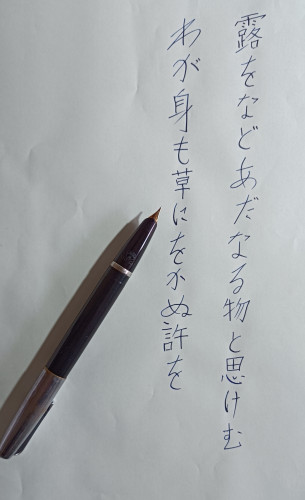 露をなどあだなる物と思けむ
わが身も草にをかぬ許を